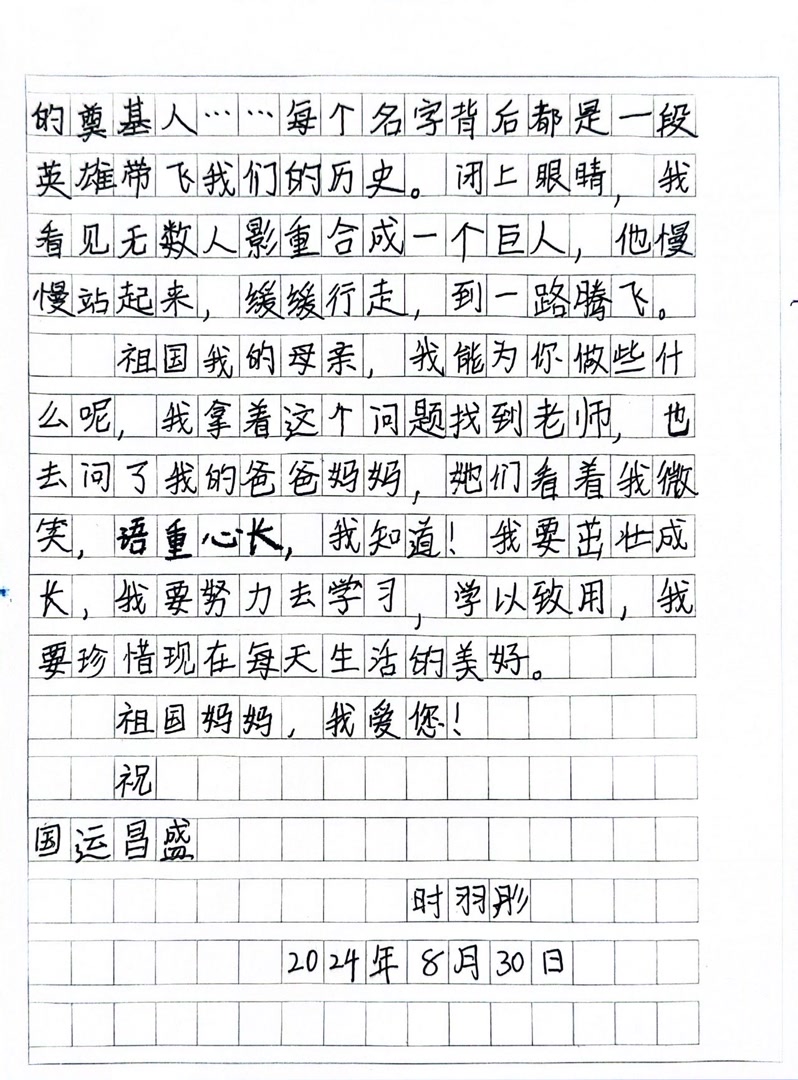 的奠基人……每个名字背后都是一段
英雄带飞我们的历史。闭上眼睛，我
看见无数人影重合成一个巨人，他慢
慢站起来，缓缓行走，到一路腾飞。
祖国我的母亲，我能为你做些什
么呢，我拿着这个问题找到老师，也
去问了我的爸爸妈妈，她们看着我微
笑，语重心长，我知道！我要茁壮成
长，我要努力去学习，学以致用，我
要珍惜现在每天生活的美好。
祖国妈妈，我爱您！
祝
国运昌盛
时羽彤
2024年8月30日